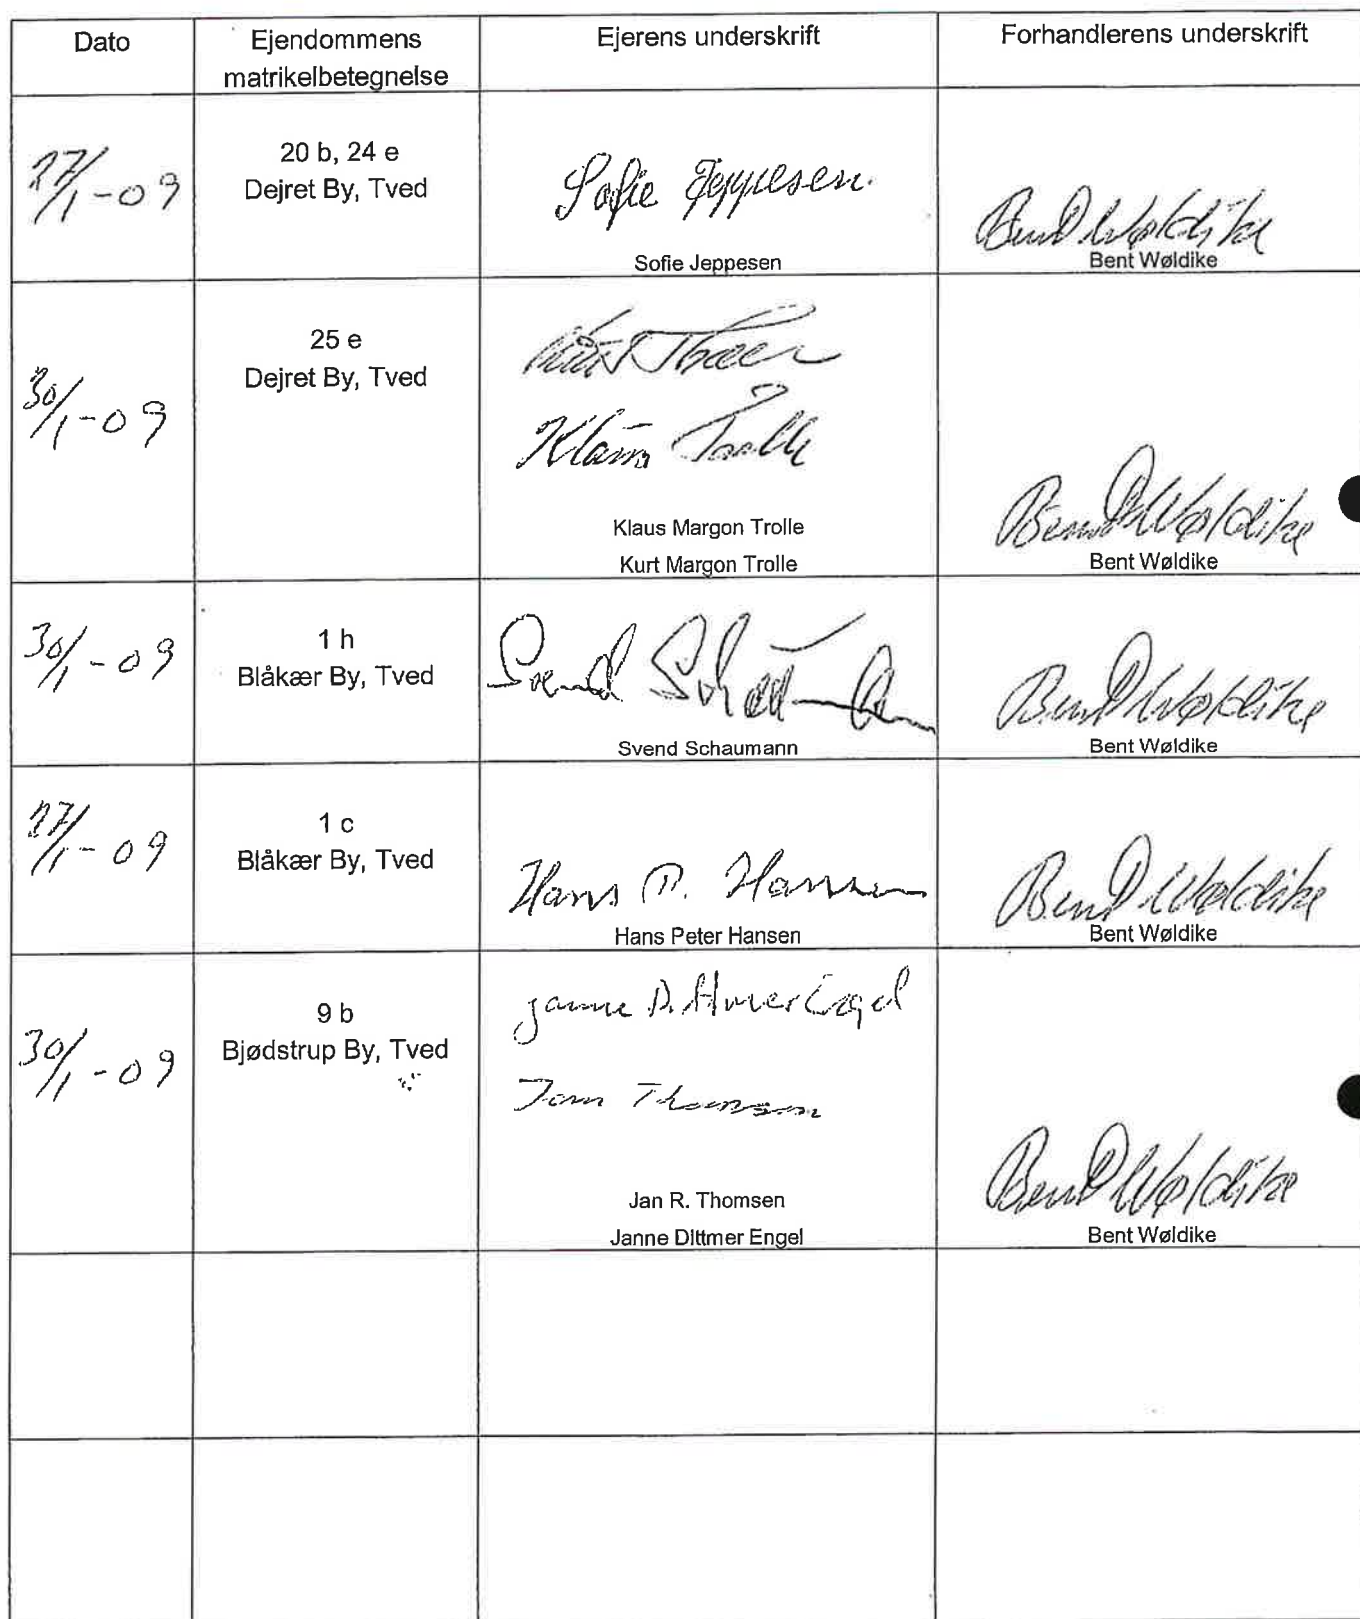 Dato
Ejendommens
matrikelbetegnelse
Ejerens underskrift
Forhandlerens underskrift
27/1-09
20 b, 24 e
Dejret By, Tved
Sofie Jeppesen.
Sofie Jeppesen
Bent Wøldike
Bent Wøldike
30/1-09
25 e
Dejret By, Tved
Klaus Trolle
Klaus Margon Trolle
Kurt Margon Trolle
Bent Wøldike
Bent Wøldike
30/1-09
1 h
Blåkær By, Tved
Svend Schaumann
Svend Schaumann
Bent Wøldike
Bent Wøldike
27/1-09
1 c
Blåkær By, Tved
Hans P. Hansen
Hans Peter Hansen
Bent Wøldike
Bent Wøldike
30/1-09
9 b
Bjødstrup By, Tved
Janne D. Engel
Jan Thomsen
Jan R. Thomsen
Janne Dittmer Engel
Bent Wøldike
Bent Wøldike